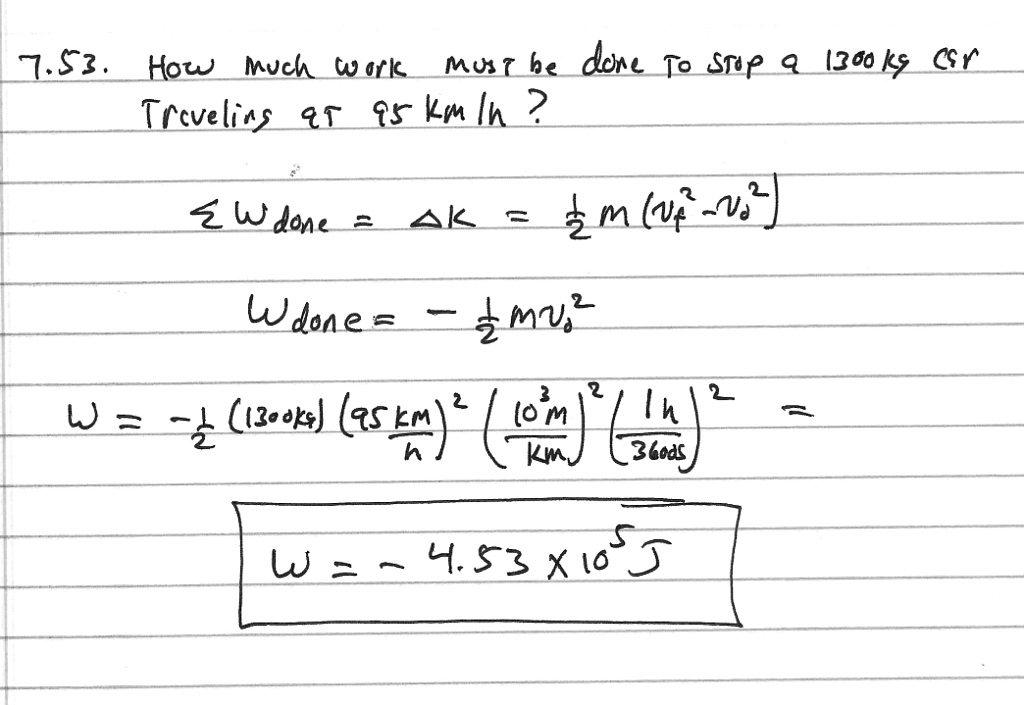 7.53. How much work must be done to stop a 1300 kg car
Traveling at 95 km/h?
ΣW done = ΔK = ½ m (v_f² - v₀²)
W done = - ½ m v₀²
W = -½ (1300kg) (95 km/h)² (10³m/km)² (1h/3600s)² =
W = - 4.53 x 10⁵ J